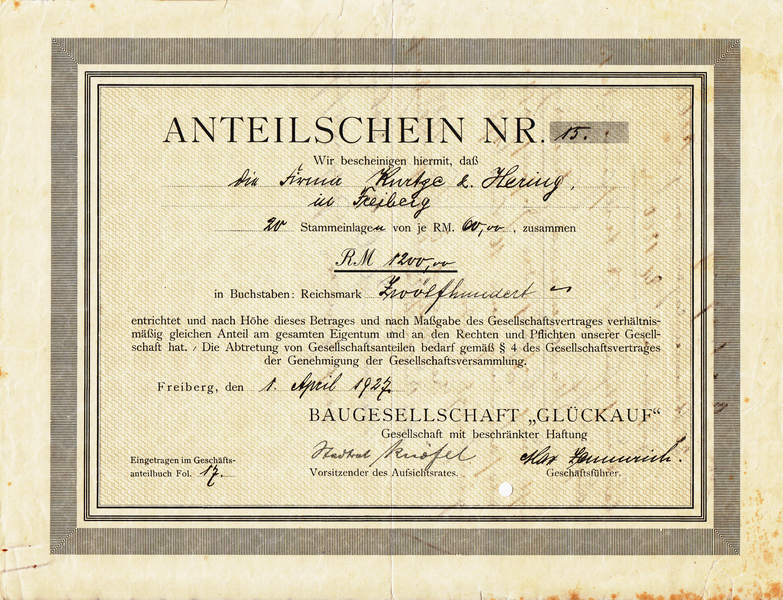 ANTEILSCHEIN NR. 15.
Wir bescheinigen hiermit, daß
die Firma Kurtze & Hering,
in Freiberg
20 Stammeinlagen von je RM. 60,00, zusammen
RM 1200,00
in Buchstaben: Reichsmark Zwölfhundert
entrichtet und nach Höhe dieses Betrages und nach Maßgabe des Gesellschaftsvertrages verhältnis-
mäßig gleichen Anteil am gesamten Eigentum und an den Rechten und Pflichten unserer Gesell-
schaft hat. Die Abtretung von Gesellschaftsanteilen bedarf gemäß § 4 des Gesellschaftsvertrages
der Genehmigung der Gesellschaftsversammlung.
Freiberg, den 1. April 1927.
BAUGESELLSCHAFT „GLÜCKAUF“
Gesellschaft mit beschränkter Haftung
Stadtrat Knöfel
Max
Eingetragen im Geschäfts-
anteilbuch Fol. 17.
Vorsitzender des Aufsichtsrates.
Geschäftsführer.